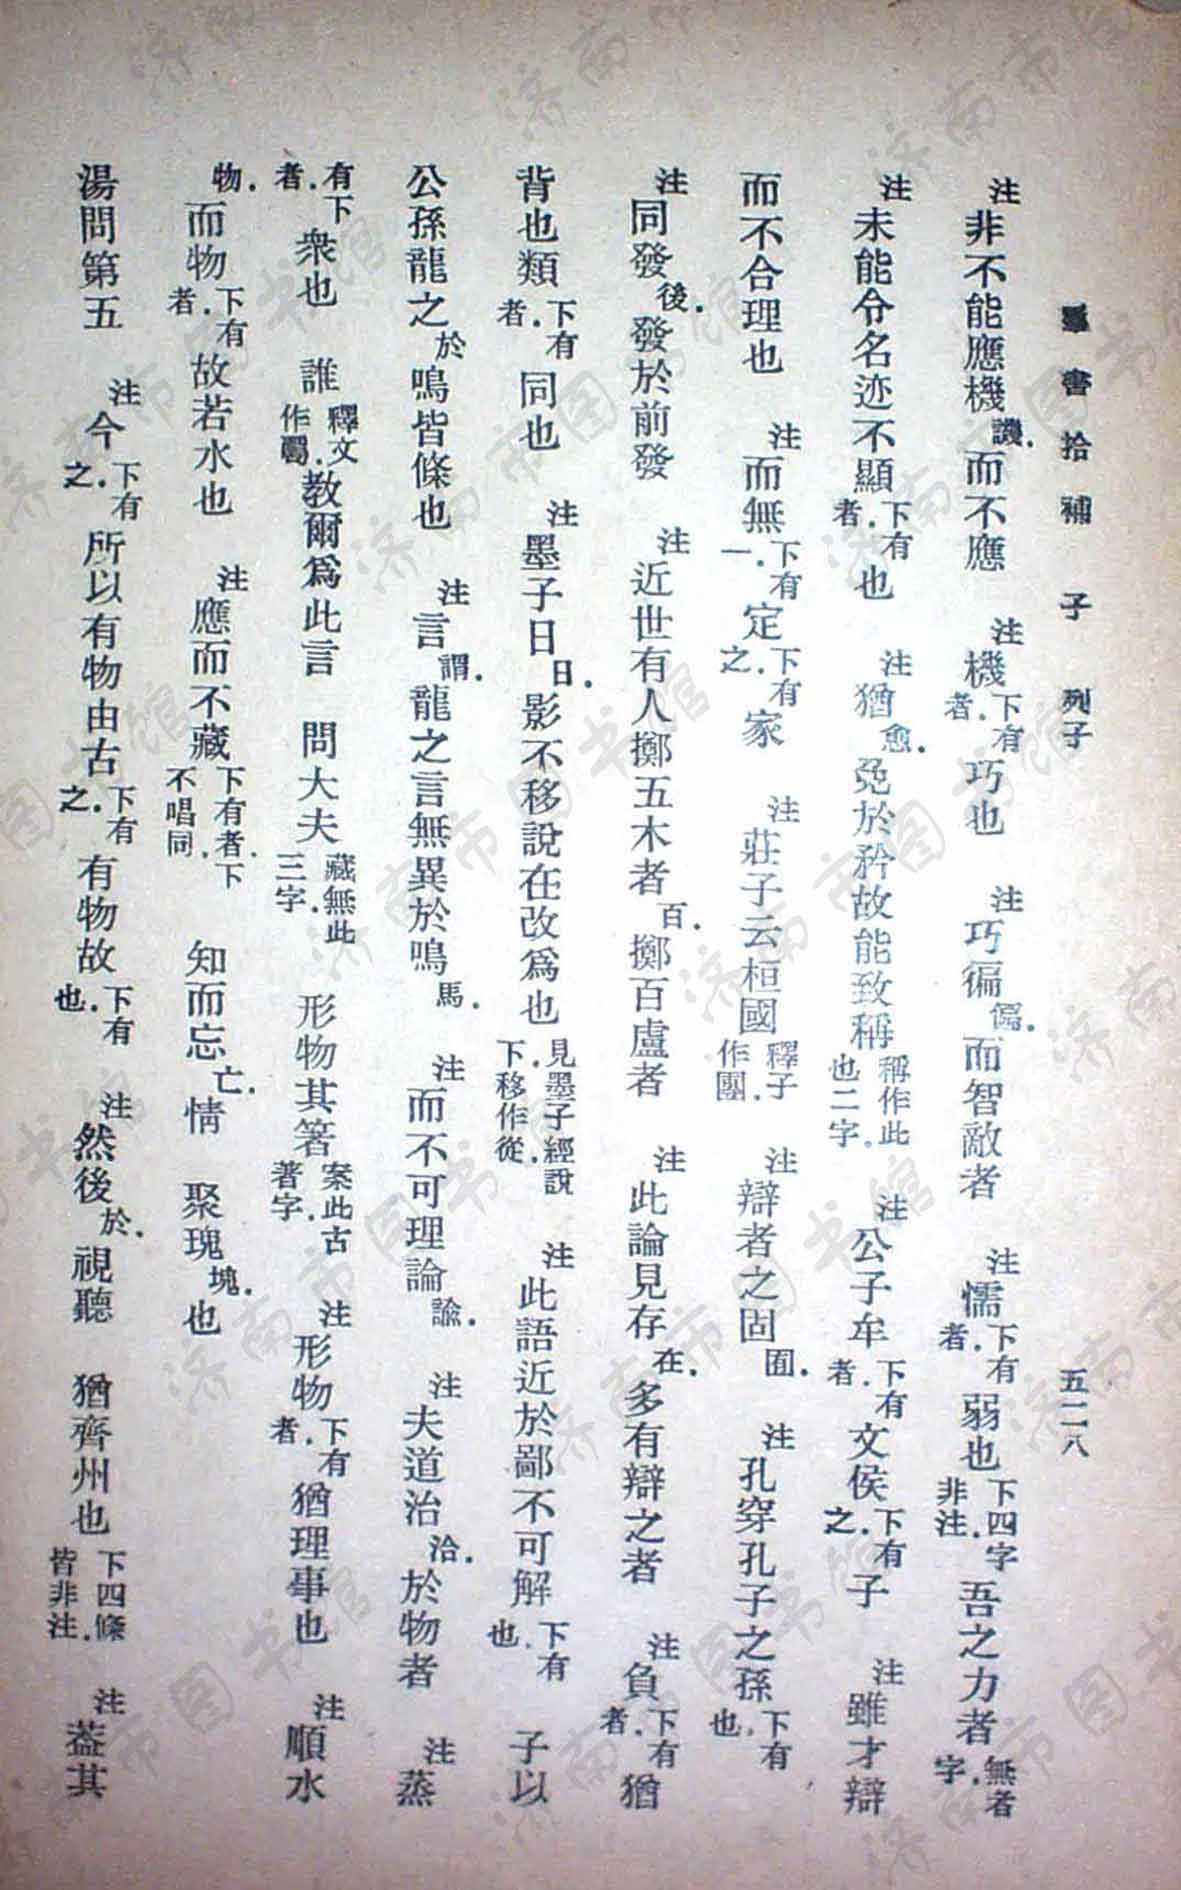 羣書拾補 子 列子 五二八
注非不能應機譏.而不應 注機下有者.巧也 注巧徧偏.而智敵者 注懦下有者.弱也下四字非注.吾之力者無者字.
注未能令名迹不顯下有者.也 注猶愈.免於矜故能致稱稱作此也二字. 注公子牟下有者.文侯下有之.子 注雖才辯
而不合理也 注而無下有一.定下有之.家 注莊子云桓國釋子作團. 注辯者之固囿. 注孔穿孔子之孫下有也.
注同發後.發於前發 注近世有人擲五木者百.擲百盧者 注此論見存在.多有辯之者 注負下有者.猶
背也類下有者.同也 注墨子日曰.影不移說在改爲也見墨子經說下.移作從. 注此語近於鄙不可解下有也. 子以
公孫龍之於鳴皆條也 注言謂.龍之言無異於鳴馬. 注而不可理論諭. 注夫道治洽.於物者 注蒸
有下者.衆也 誰釋文作屬.教爾爲此言 問大夫藏無此三字. 形物其箸案此古著字. 注形物下有者.猶理事也 注順水
物.而物下有者.故若水也 注應而不藏下有者.下不唱同. 知而忘亡.情 聚瑰塊.也
湯問第五 注今下有之.所以有物由古下有之.有物故下有也. 注然後於.視聽 猶齊州也下四條皆非注. 注葢其